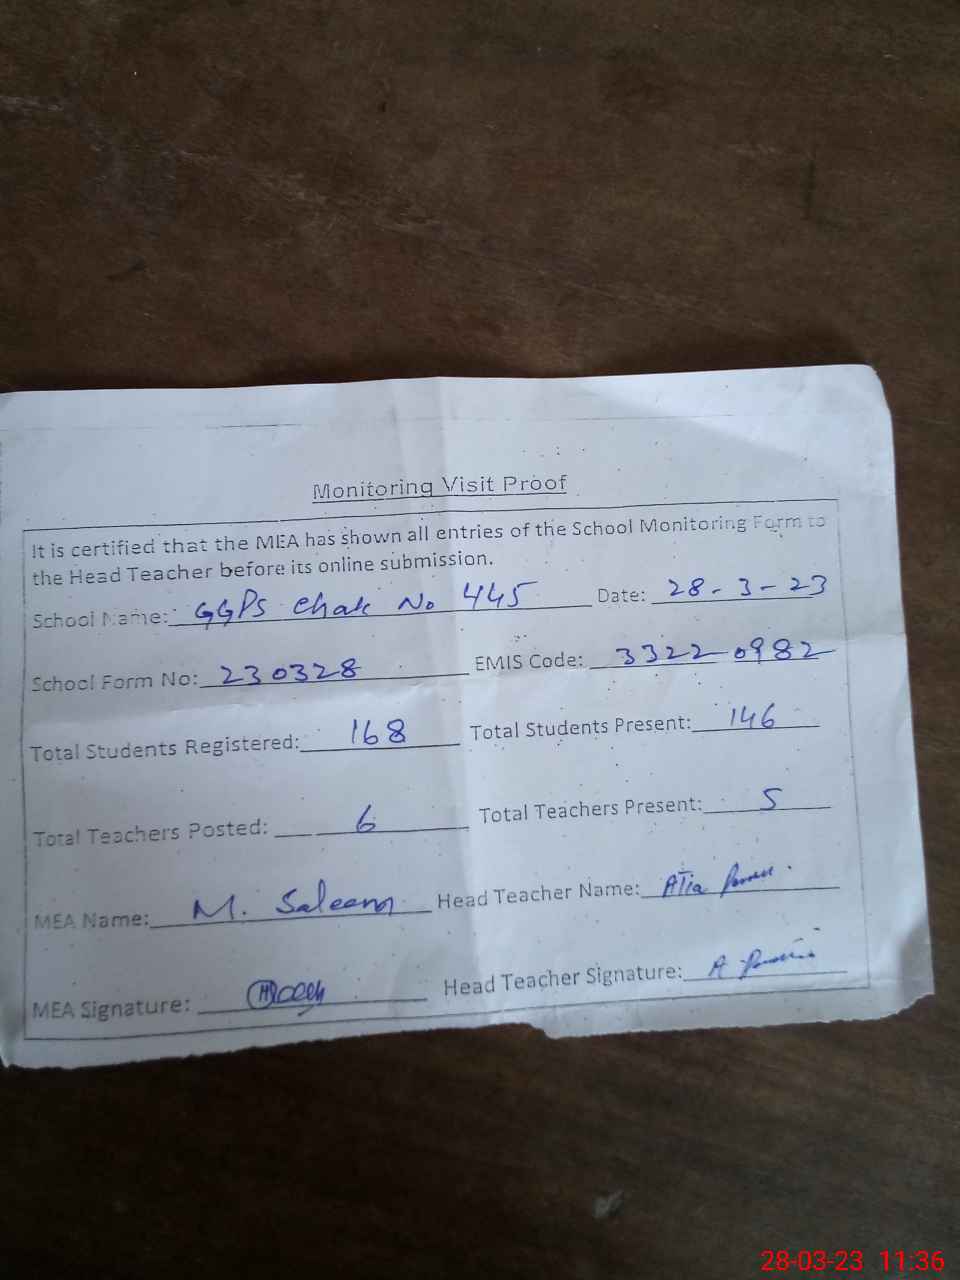 Monitoring Visit Proof
It is certified that the MEA has shown all entries of the School Monitoring Form to
the Head Teacher before its online submission.
School Name: GGPS Chak No 445 Date: 28-3-23
School Form No: 230328 EMIS Code: 33220982
Total Students Registered: 168 Total Students Present: 146
Total Teachers Posted: 6 Total Teachers Present: 5
MEA Name: M. Saleem Head Teacher Name: Atia
MEA Signature: Head Teacher Signature: A
28-03-23 11:36